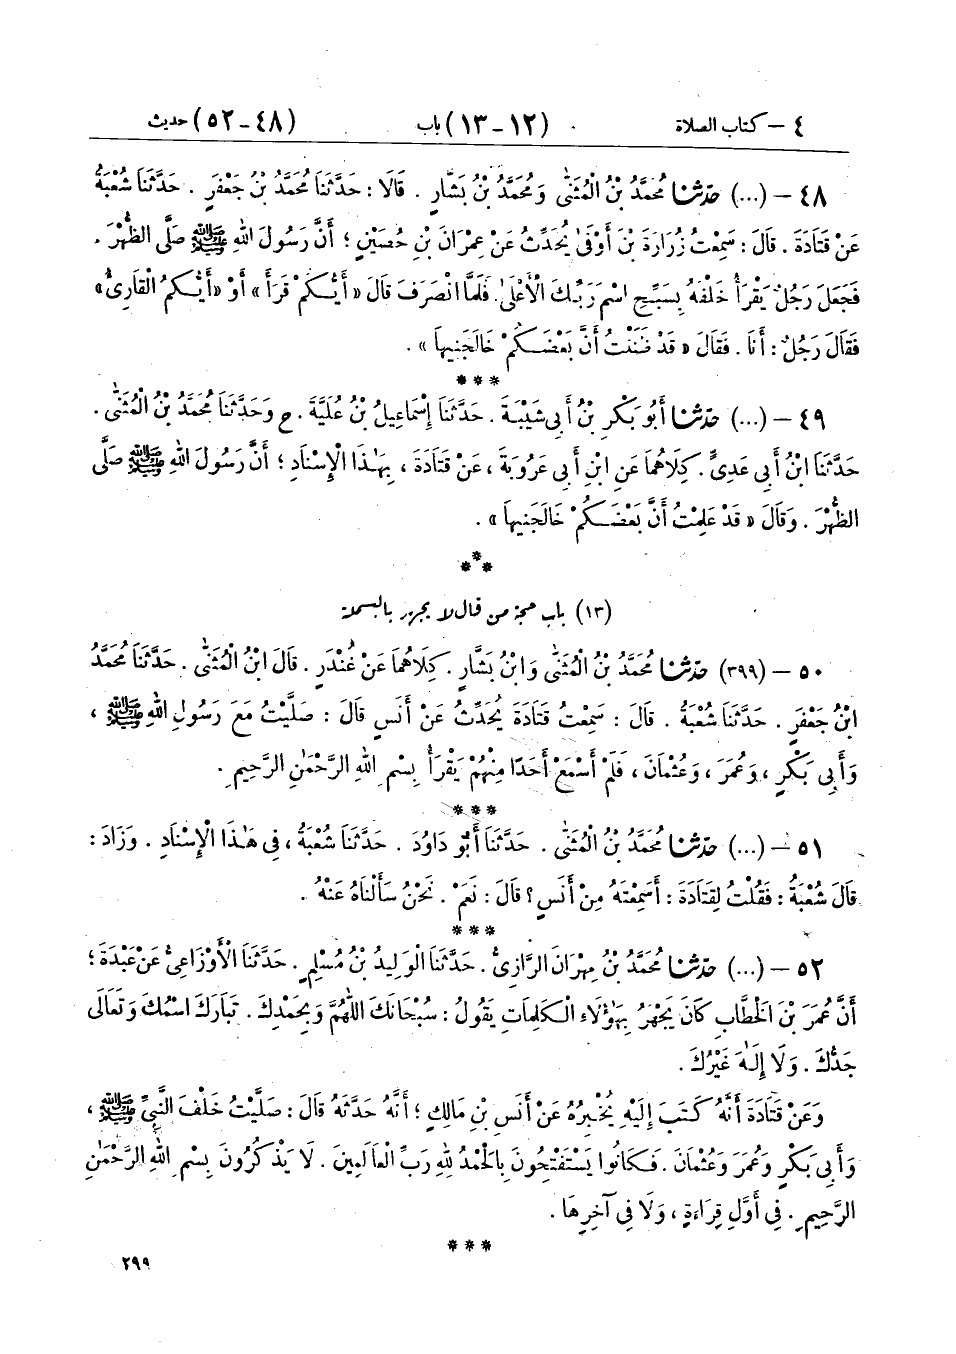 ٤ – كتاب الصلاة (١٢ – ١٣) باب (٤٨ – ٥٢) حديث
٤٨ – (...) حَدَّثَنَا مُحَمَّدُ بْنُ الْمُثَنَّىٰ وَمُحَمَّدُ بْنُ بَشَّارٍ . قَالَا : حَدَّثَنَا مُحَمَّدُ بْنُ جَعْفَرٍ . حَدَّثَنَا شُعْبَةُ
عَنْ قَتَادَةَ . قَالَ : سَمِعْتُ زُرَارَةَ بْنَ أَوْفَىٰ يُحَدِّثُ عَنْ عِمْرَانَ بْنِ حُصَيْنٍ ؛ أَنَّ رَسُولَ اللهِ ﷺ صَلَّى الظُّهْرَ .
فَجَعَلَ رَجُلٌ يَقْرَأُ خَلْفَهُ بِسَبِّحِ اسْمَ رَبِّكَ الْأَعْلَىٰ. فَلَمَّا انْصَرَفَ قَالَ « أَيُّكُمْ قَرَأَ » أَوْ « أَيُّكُمُ الْقَارِئُ »
فَقَالَ رَجُلٌ : أَنَا . فَقَالَ « قَدْ ظَنَنْتُ أَنَّ بَعْضَكُمْ خَالَجَنِيهَا » .
***
٤٩ – (...) حَدَّثَنَا أَبُو بَكْرِ بْنُ أَبِي شَيْبَةَ . حَدَّثَنَا إِسْمَاعِيلُ بْنُ عُلَيَّةَ . ح وَحَدَّثَنَا مُحَمَّدُ بْنُ الْمُثَنَّىٰ .
حَدَّثَنَا ابْنُ أَبِي عَدِيٍّ . كِلَاهُمَا عَنِ ابْنِ أَبِي عَرُوبَةَ ، عَنْ قَتَادَةَ ، بِهَـٰذَا الْإِسْنَادِ ؛ أَنَّ رَسُولَ اللهِ ﷺ صَلَّى
الظُّهْرَ . وَقَالَ « قَدْ عَلِمْتُ أَنَّ بَعْضَكُمْ خَالَجَنِيهَا » .
***
(١٣) باب حجة من قال لا يجهر بالبسملة
٥٠ – (٣٩٩) حَدَّثَنَا مُحَمَّدُ بْنُ الْمُثَنَّىٰ وَابْنُ بَشَّارٍ . كِلَاهُمَا عَنْ غُنْدَرٍ . قَالَ ابْنُ الْمُثَنَّىٰ . حَدَّثَنَا مُحَمَّدُ
ابْنُ جَعْفَرٍ . حَدَّثَنَا شُعْبَةُ . قَالَ : سَمِعْتُ قَتَادَةَ يُحَدِّثُ عَنْ أَنَسٍ قَالَ : صَلَّيْتُ مَعَ رَسُولِ اللهِ ﷺ ،
وَأَبِي بَكْرٍ ، وَعُمَرَ ، وَعُثْمَانَ ، فَلَمْ أَسْمَعْ أَحَدًا مِنْهُمْ يَقْرَأُ بِسْمِ اللهِ الرَّحْمَـٰنِ الرَّحِيمِ .
***
٥١ – (...) حَدَّثَنَا مُحَمَّدُ بْنُ الْمُثَنَّىٰ . حَدَّثَنَا أَبُو دَاوُدَ . حَدَّثَنَا شُعْبَةُ ، فِي هَـٰذَا الْإِسْنَادِ . وَزَادَ :
قَالَ شُعْبَةُ : فَقُلْتُ لِقَتَادَةَ : أَسَمِعْتَهُ مِنْ أَنَسٍ ؟ قَالَ : نَعَمْ . نَحْنُ سَأَلْنَاهُ عَنْهُ .
***
٥٢ – (...) حَدَّثَنَا مُحَمَّدُ بْنُ مِهْرَانَ الرَّازِيُّ . حَدَّثَنَا الْوَلِيدُ بْنُ مُسْلِمٍ . حَدَّثَنَا الْأَوْزَاعِيُّ عَنْ عَبْدَةَ ؛
أَنَّ عُمَرَ بْنَ الْخَطَّابِ كَانَ يَجْهَرُ بِهَـٰؤُلَاءِ الْكَلِمَاتِ يَقُولُ : سُبْحَانَكَ اللّٰهُمَّ وَبِحَمْدِكَ . تَبَارَكَ اسْمُكَ وَتَعَالَى
جَدُّكَ . وَلَا إِلَـٰهَ غَيْرُكَ .
وَعَنْ قَتَادَةَ أَنَّهُ كَتَبَ إِلَيْهِ يُخْبِرُهُ عَنْ أَنَسِ بْنِ مَالِكٍ ؛ أَنَّهُ حَدَّثَهُ قَالَ : صَلَّيْتُ خَلْفَ النَّبِيِّ ﷺ ،
وَأَبِي بَكْرٍ وَعُمَرَ وَعُثْمَانَ . فَكَانُوا يَسْتَفْتِحُونَ بِالْحَمْدُ لِلهِ رَبِّ الْعَالَمِينَ . لَا يَذْكُرُونَ بِسْمِ اللهِ الرَّحْمَـٰنِ
الرَّحِيمِ . فِي أَوَّلِ قِرَاءَةٍ ، وَلَا فِي آخِرِهَا .
***
٢٩٩